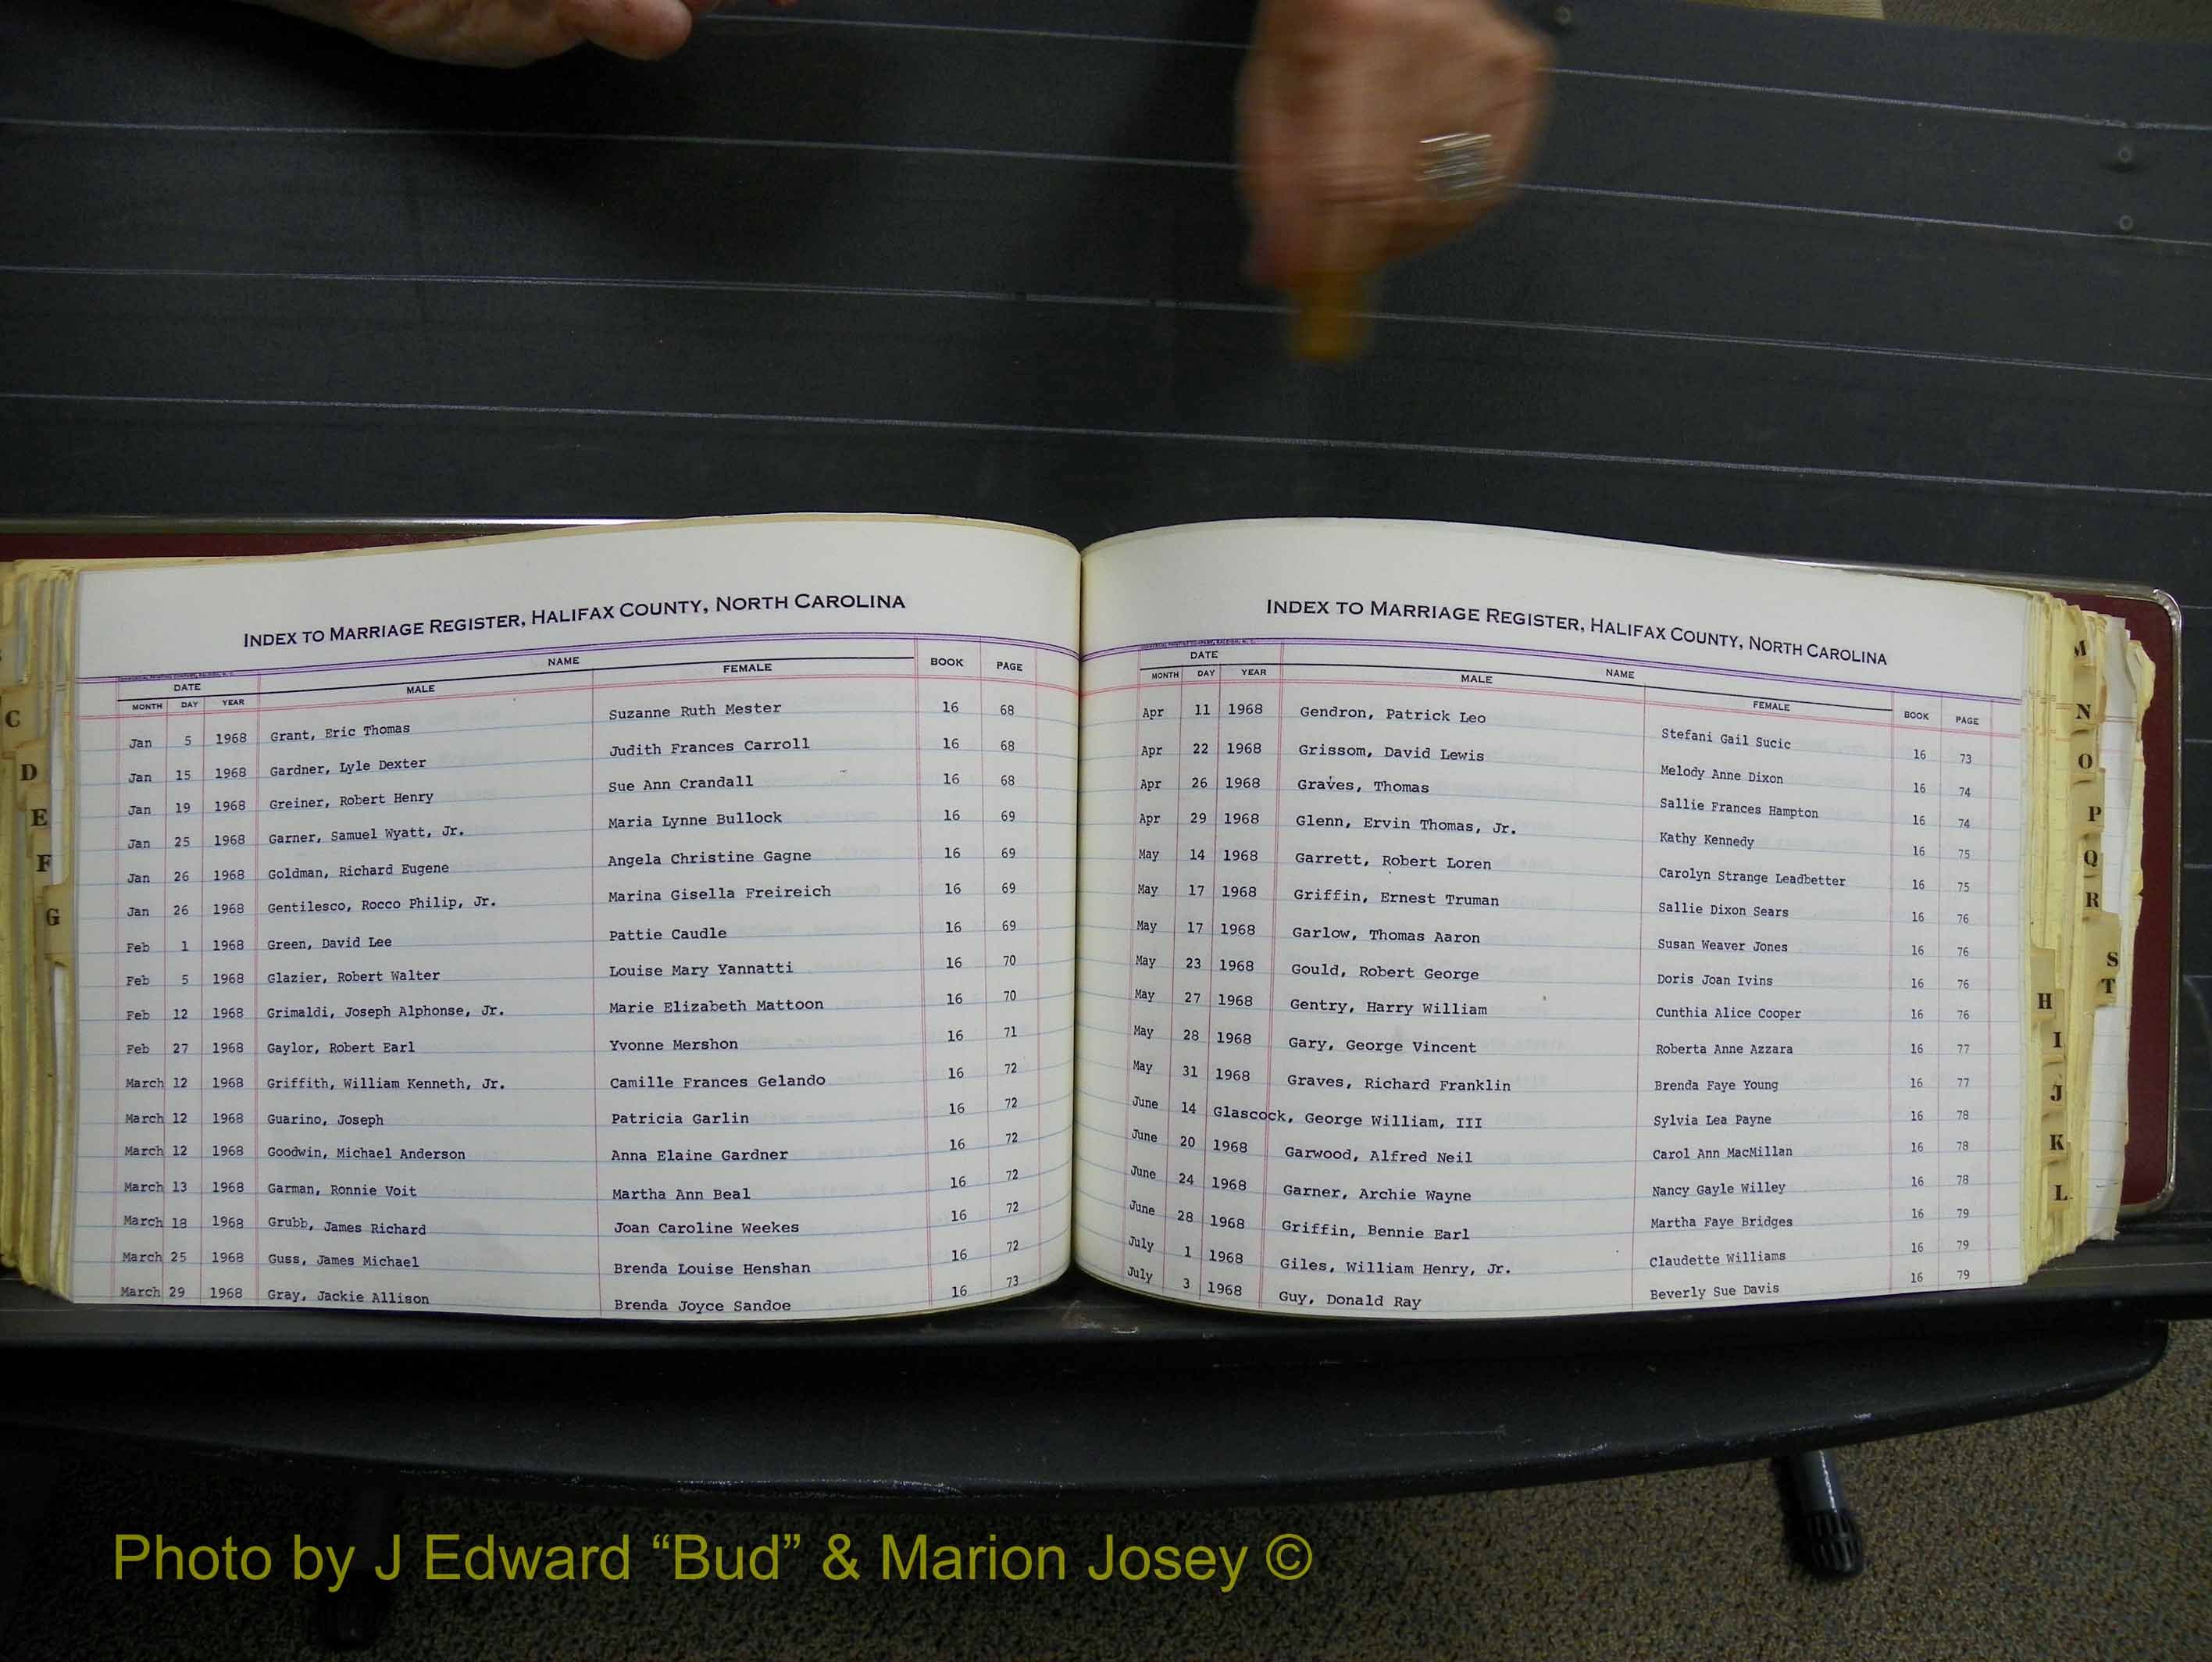 INDEX TO MARRIAGE REGISTER, HALIFAX COUNTY, NORTH CAROLINA
DATE NAME BOOK PAGE
MONTH DAY YEAR MALE FEMALE
Jan 5 1968 Grant, Eric Thomas Suzanne Ruth Mester 16 68
Jan 15 1968 Gardner, Lyle Dexter Judith Frances Carroll 16 68
Jan 19 1968 Greiner, Robert Henry Sue Ann Crandall 16 68
Jan 25 1968 Garner, Samuel Wyatt, Jr. Maria Lynne Bullock 16 69
Jan 26 1968 Goldman, Richard Eugene Angela Christine Gagne 16 69
Jan 26 1968 Gentilesco, Rocco Philip, Jr. Marina Gisella Freireich 16 69
Feb 1 1968 Green, David Lee Pattie Caudle 16 69
Feb 5 1968 Glazier, Robert Walter Louise Mary Yannatti 16 70
Feb 12 1968 Grimaldi, Joseph Alphonse, Jr. Marie Elizabeth Mattoon 16 70
Feb 27 1968 Gaylor, Robert Earl Yvonne Mershon 16 71
March 12 1968 Griffith, William Kenneth, Jr. Camille Frances Gelando 16 72
March 12 1968 Guarino, Joseph Patricia Garlin 16 72
March 12 1968 Goodwin, Michael Anderson Anna Elaine Gardner 16 72
March 13 1968 Garman, Ronnie Voit Martha Ann Beal 16 72
March 18 1968 Grubb, James Richard Joan Caroline Weekes 16 72
March 25 1968 Guss, James Michael Brenda Louise Henshan 16 72
March 29 1968 Gray, Jackie Allison Brenda Joyce Sandoe 16 73
INDEX TO MARRIAGE REGISTER, HALIFAX COUNTY, NORTH CAROLINA
DATE NAME BOOK PAGE
MONTH DAY YEAR MALE FEMALE
Apr 11 1968 Gendron, Patrick Leo Stefani Gail Sucic 16 73
Apr 22 1968 Grissom, David Lewis Melody Anne Dixon 16 74
Apr 26 1968 Graves, Thomas Sallie Frances Hampton 16 74
Apr 29 1968 Glenn, Ervin Thomas, Jr. Kathy Kennedy 16 75
May 14 1968 Garrett, Robert Loren Carolyn Strange Leadbetter 16 75
May 17 1968 Griffin, Ernest Truman Sallie Dixon Sears 16 76
May 17 1968 Garlow, Thomas Aaron Susan Weaver Jones 16 76
May 23 1968 Gould, Robert George Doris Joan Ivins 16 76
May 27 1968 Gentry, Harry William Cunthia Alice Cooper 16 76
May 28 1968 Gary, George Vincent Roberta Anne Azzara 16 77
May 31 1968 Graves, Richard Franklin Brenda Faye Young 16 77
June 14 Glascock, George William, III Sylvia Lea Payne 16 78
June 20 1968 Garwood, Alfred Neil Carol Ann MacMillan 16 78
June 24 1968 Garner, Archie Wayne Nancy Gayle Willey 16 78
June 28 1968 Griffin, Bennie Earl Martha Faye Bridges 16 79
July 1 1968 Giles, William Henry, Jr. Claudette Williams 16 79
July 3 1968 Guy, Donald Ray Beverly Sue Davis 16 79
C
D
E
F
G
H
I
J
K
L
M
N
O
P
Q
R
S
T
Photo by J Edward “Bud” & Marion Josey ©